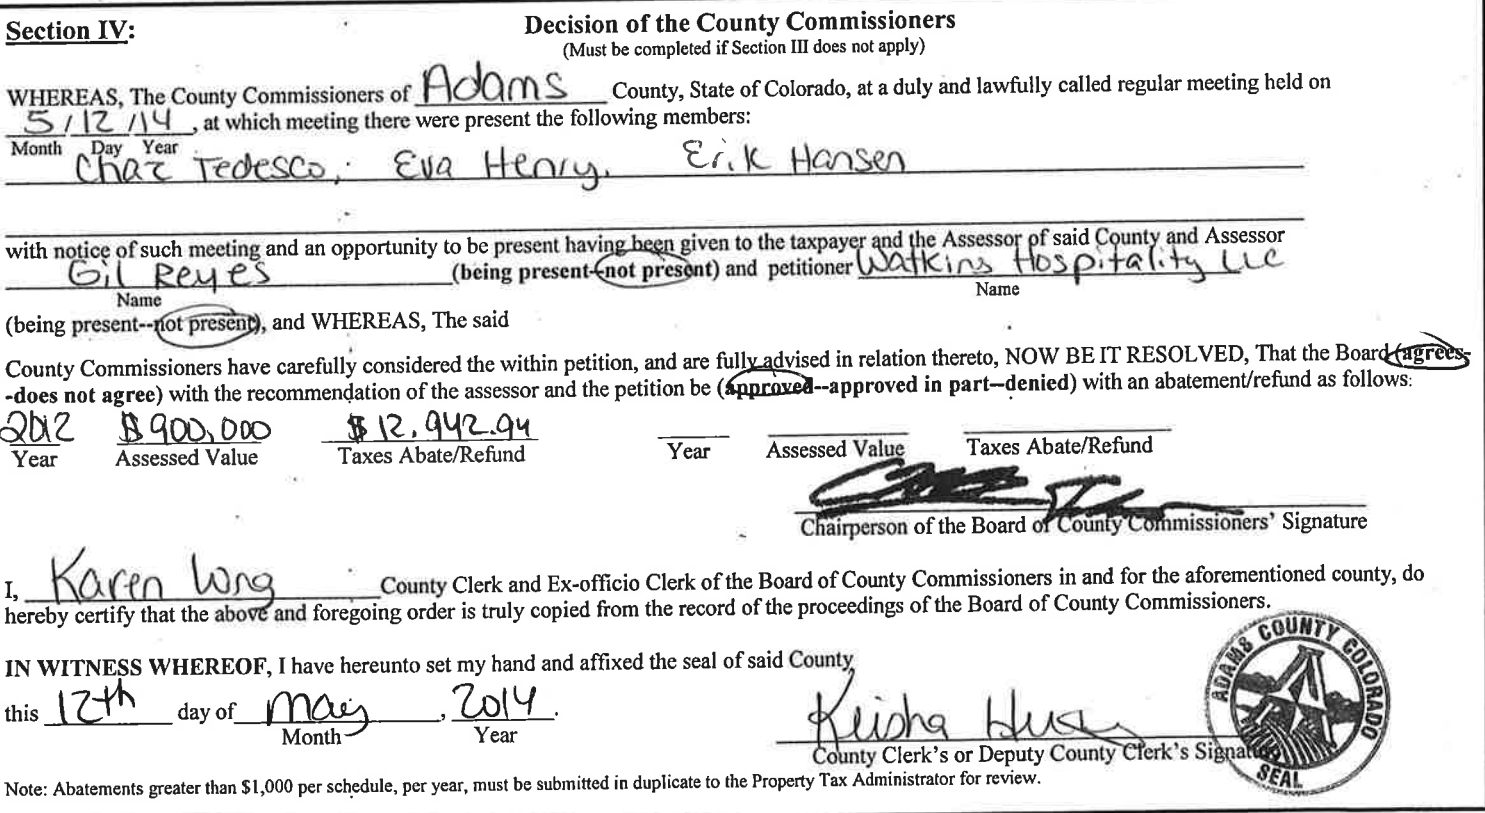 Section IV:
Decision of the County Commissioners
(Must be completed if Section III does not apply)
WHEREAS, The County Commissioners of Adams County, State of Colorado, at a duly and lawfully called regular meeting held on
5/12/14, at which meeting there were present the following members:
Month Day Year
Chaz Tedesco, Eva Henry, Erik Hansen
with notice of such meeting and an opportunity to be present having been given to the taxpayer and the Assessor of said County and Assessor
Gil Reyes (being present--not present) and petitioner Watkins Hospitality LLC
Name Name
(being present--not present), and WHEREAS, The said
County Commissioners have carefully considered the within petition, and are fully advised in relation thereto, NOW BE IT RESOLVED, That the Board (agrees-
-does not agree) with the recommendation of the assessor and the petition be (approved--approved in part--denied) with an abatement/refund as follows:
2012 $900,000 $12,942.94
Year Assessed Value Taxes Abate/Refund Year Assessed Value Taxes Abate/Refund
Chairperson of the Board of County Commissioners' Signature
I, Karen County Clerk and Ex-officio Clerk of the Board of County Commissioners in and for the aforementioned county, do
hereby certify that the above and foregoing order is truly copied from the record of the proceedings of the Board of County Commissioners.
IN WITNESS WHEREOF, I have hereunto set my hand and affixed the seal of said County
this 12th day of May, 2014.
Month Year
Keisha
County Clerk's or Deputy County Clerk's Signature
ADAMS COUNTY COLORADO
SEAL
Note: Abatements greater than $1,000 per schedule, per year, must be submitted in duplicate to the Property Tax Administrator for review.